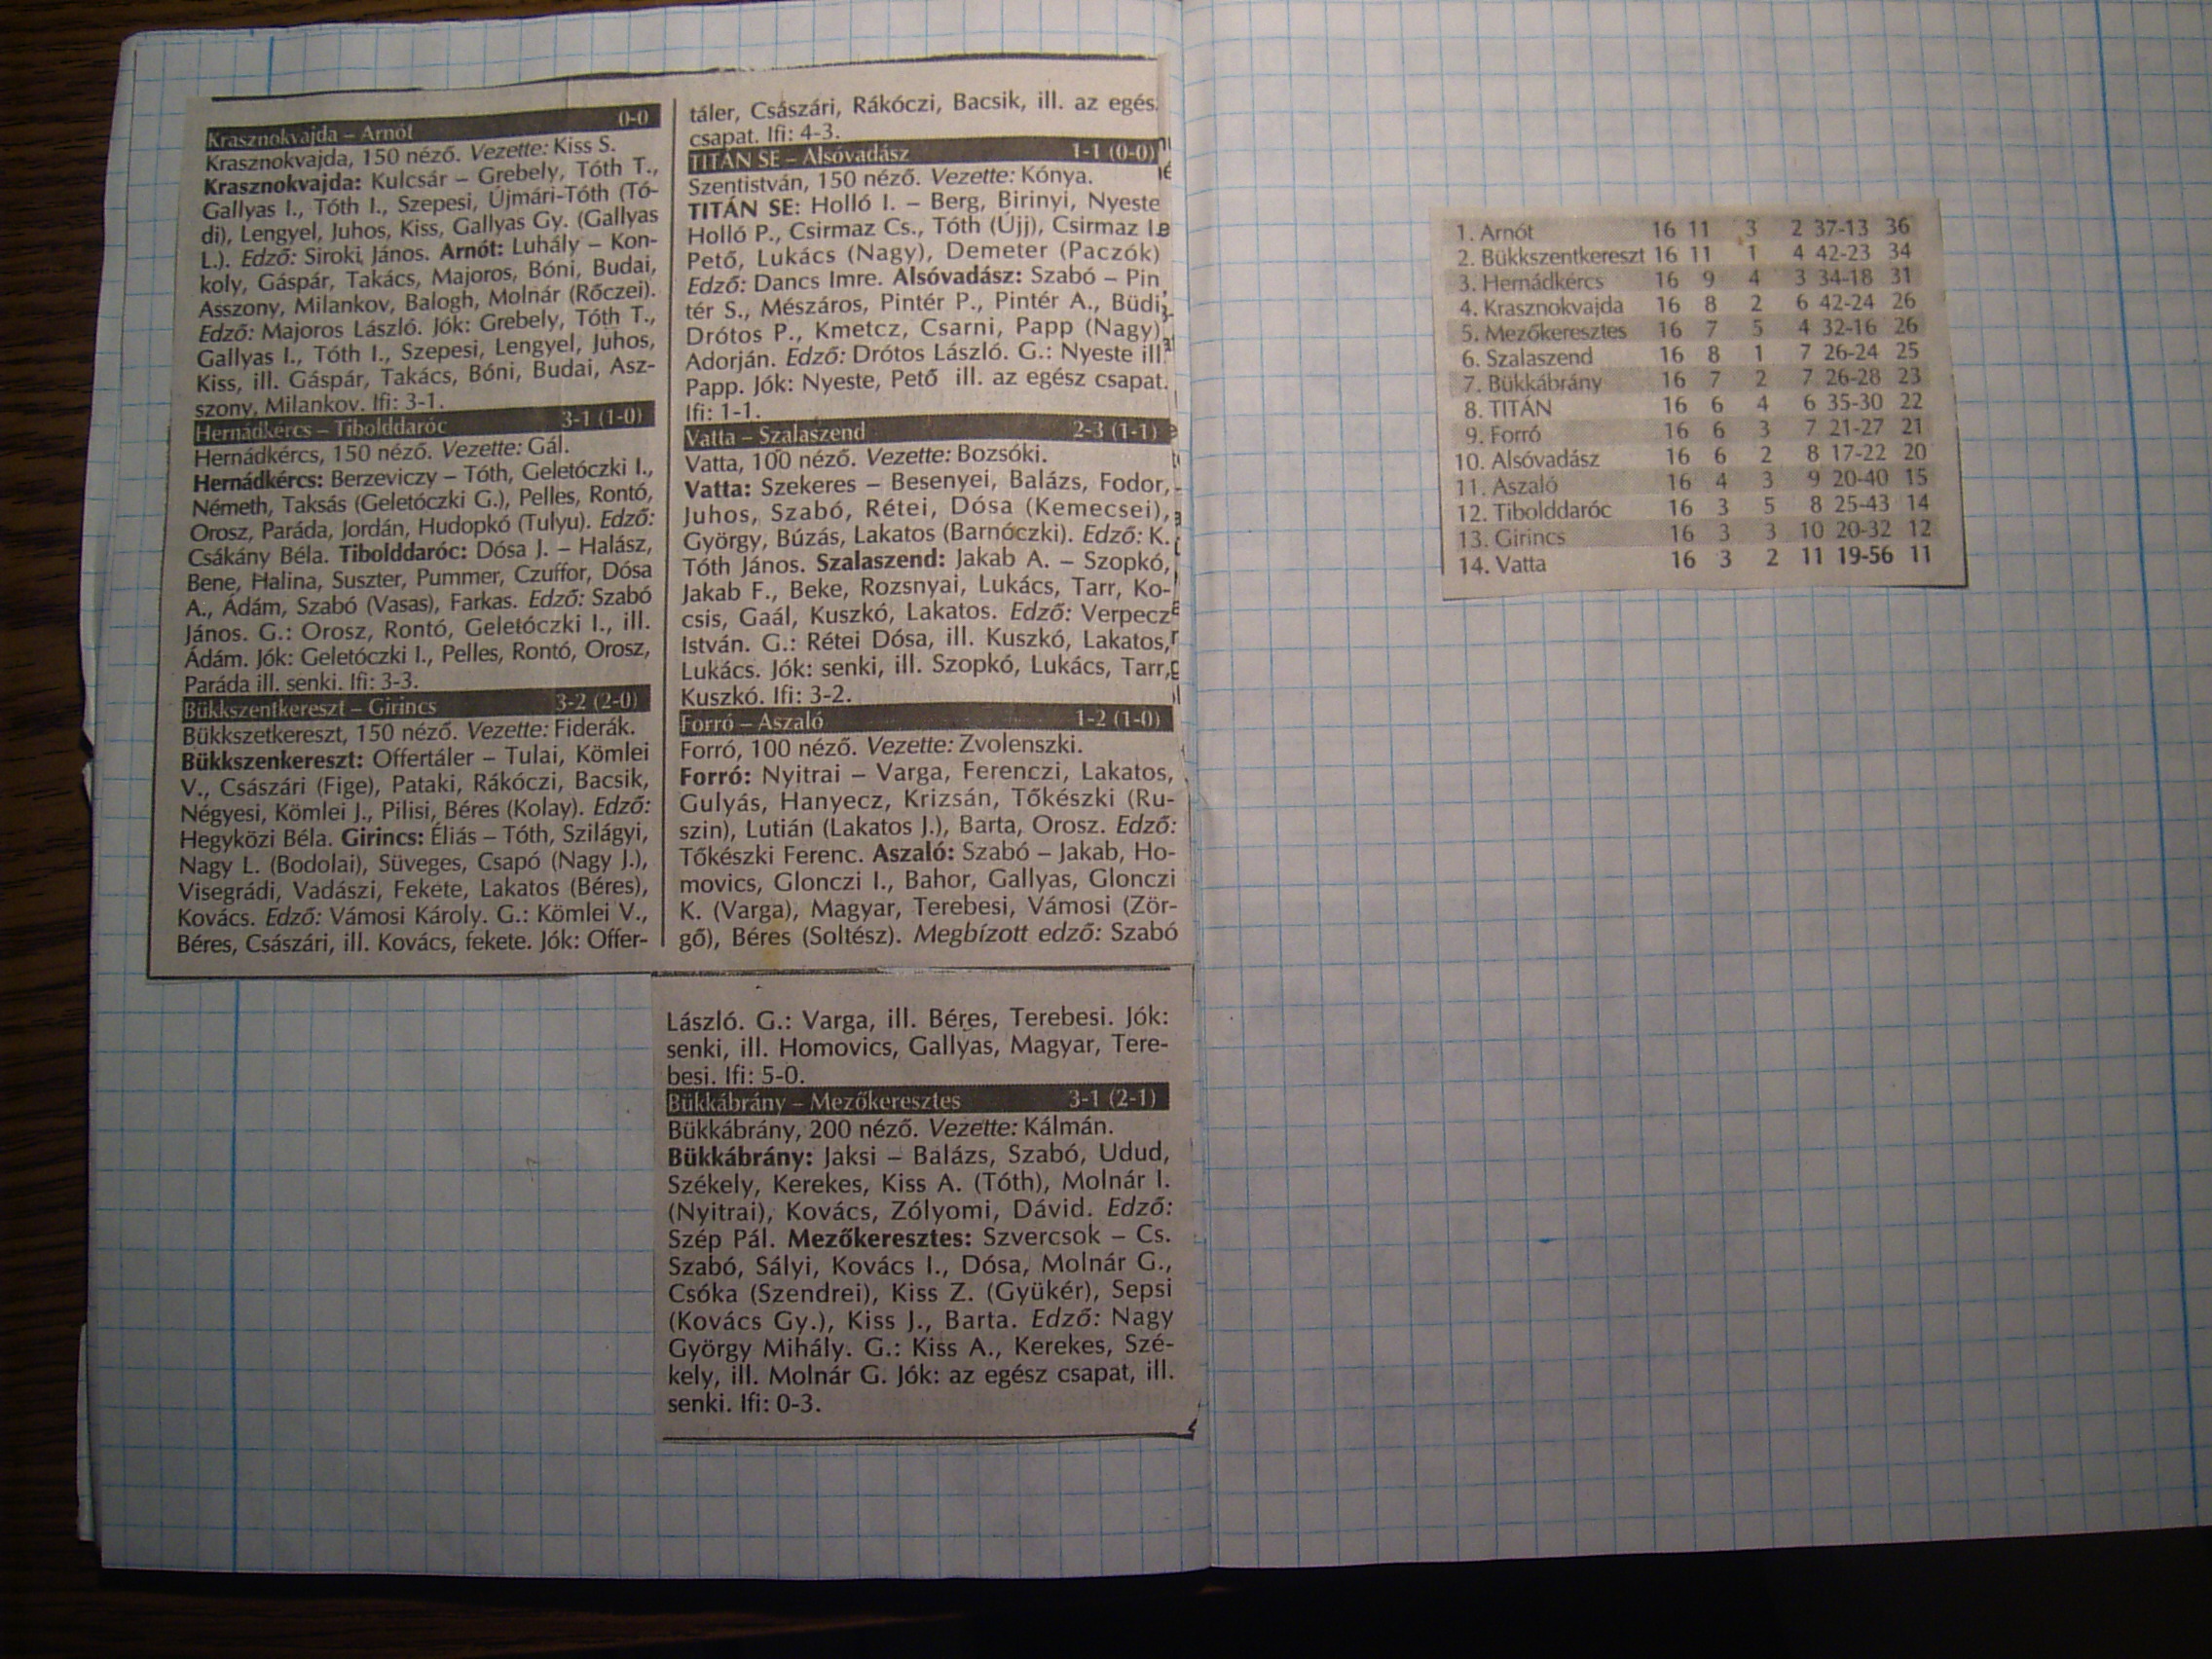 Krasznokvajda – Arnót 0-0
Krasznokvajda, 150 néző. Vezette: Kiss S.
Krasznokvajda: Kulcsár – Grebely, Tóth T.,
Gallyas I., Tóth I., Szepesi, Újmári-Tóth (Tó-
di), Lengyel, Juhos, Kiss, Gallyas Gy. (Gallyas
L.). Edző: Siroki János. Arnót: Luhály – Kon-
koly, Gáspár, Takács, Majoros, Bóni, Budai,
Asszony, Milankov, Balogh, Molnár (Rőczei).
Edző: Majoros László. Jók: Grebely, Tóth T.,
Gallyas I., Tóth I., Szepesi, Lengyel, Juhos,
Kiss, ill. Gáspár, Takács, Bóni, Budai, Asz-
szony, Milankov. Ifi: 3-1.
Hernádkércs – Tibolddaróc 3-1 (1-0)
Hernádkércs, 150 néző. Vezette: Gál.
Hernádkércs: Berzeviczy – Tóth, Geletóczki I.,
Németh, Taksás (Geletóczki G.), Pelles, Rontó,
Orosz, Paráda, Jordán, Hudopkó (Tulyu). Edző:
Csákány Béla. Tibolddaróc: Dósa J. – Halász,
Bene, Halina, Suszter, Pummer, Czuffor, Dósa
A., Ádám, Szabó (Vasas), Farkas. Edző: Szabó
János. G.: Orosz, Rontó, Geletóczki I., ill.
Ádám. Jók: Geletóczki I., Pelles, Rontó, Orosz,
Paráda ill. senki. Ifi: 3-3.
Bükkszentkereszt – Girincs 3-2 (2-0)
Bükkszetkereszt, 150 néző. Vezette: Fiderák.
Bükkszenkereszt: Offertáler – Tulai, Kömlei
V., Császári (Fige), Pataki, Rákóczi, Bacsik,
Négyesi, Kömlei J., Pilisi, Béres (Kolay). Edző:
Hegyközi Béla. Girincs: Éliás – Tóth, Szilágyi,
Nagy L. (Bodolai), Süveges, Csapó (Nagy J.),
Visegrádi, Vadászi, Fekete, Lakatos (Béres),
Kovács. Edző: Vámosi Károly. G.: Kömlei V.,
Béres, Császári, ill. Kovács, fekete. Jók: Offer-
táler, Császári, Rákóczi, Bacsik, ill. az egés
csapat. Ifi: 4-3.
TITÁN SE – Alsóvadász 1-1 (0-0)
Szentistván, 150 néző. Vezette: Kónya.
TITÁN SE: Holló I. – Berg, Birinyi, Nyeste
Holló P., Csirmaz Cs., Tóth (Újj), Csirmaz I.
Pető, Lukács (Nagy), Demeter (Paczók)
Edző: Dancs Imre. Alsóvadász: Szabó – Pin
tér S., Mészáros, Pintér P., Pintér A., Büdi,
Drótos P., Kmetcz, Csarni, Papp (Nagy)
Adorján. Edző: Drótos László. G.: Nyeste ill.
Papp. Jók: Nyeste, Pető ill. az egész csapat.
Ifi: 1-1.
Vatta – Szalaszend 2-3 (1-1)
Vatta, 100 néző. Vezette: Bozsóki.
Vatta: Szekeres – Besenyei, Balázs, Fodor,
Juhos, Szabó, Rétei, Dósa (Kemecsei),
György, Búzás, Lakatos (Barnóczki). Edző: K.
Tóth János. Szalaszend: Jakab A. – Szopkó,
Jakab F., Beke, Rozsnyai, Lukács, Tarr, Ko-
csis, Gaál, Kuszkó, Lakatos. Edző: Verpecz
István. G.: Rétei Dósa, ill. Kuszkó, Lakatos,
Lukács. Jók: senki, ill. Szopkó, Lukács, Tarr,
Kuszkó. Ifi: 3-2.
Forró – Aszaló 1-2 (1-0)
Forró, 100 néző. Vezette: Zvolenszki.
Forró: Nyitrai – Varga, Ferenczi, Lakatos,
Gulyás, Hanyecz, Krizsán, Tőkészki (Ru-
szin), Lutián (Lakatos J.), Barta, Orosz. Edző:
Tőkészki Ferenc. Aszaló: Szabó – Jakab, Ho-
movics, Glonczi I., Bahor, Gallyas, Glonczi
K. (Varga), Magyar, Terebesi, Vámosi (Zör-
gő), Béres (Soltész). Megbízott edző: Szabó
László. G.: Varga, ill. Béres, Terebesi. Jók:
senki, ill. Homovics, Gallyas, Magyar, Tere-
besi. Ifi: 5-0.
Bükkábrány – Mezőkeresztes 3-1 (2-1)
Bükkábrány, 200 néző. Vezette: Kálmán.
Bükkábrány: Jaksi – Balázs, Szabó, Udud,
Székely, Kerekes, Kiss A. (Tóth), Molnár I.
(Nyitrai), Kovács, Zólyomi, Dávid. Edző:
Szép Pál. Mezőkeresztes: Szvercsok – Cs.
Szabó, Sályi, Kovács I., Dósa, Molnár G.,
Csóka (Szendrei), Kiss Z. (Gyükér), Sepsi
(Kovács Gy.), Kiss J., Barta. Edző: Nagy
György Mihály. G.: Kiss A., Kerekes, Szé-
kely, ill. Molnár G. Jók: az egész csapat, ill.
senki. Ifi: 0-3.
1. Arnót 16 11 3 2 37-13 36
2. Bükkszentkereszt 16 11 1 4 42-23 34
3. Hernádkércs 16 9 4 3 34-18 31
4. Krasznokvajda 16 8 2 6 42-24 26
5. Mezőkeresztes 16 7 5 4 32-16 26
6. Szalaszend 16 8 1 7 26-24 25
7. Bükkábrány 16 7 2 7 26-28 23
8. TITÁN 16 6 4 6 35-30 22
9. Forró 16 6 3 7 21-27 21
10. Alsóvadász 16 6 2 8 17-22 20
11. Aszaló 16 4 3 9 20-40 15
12. Tibolddaróc 16 3 5 8 25-43 14
13. Girincs 16 3 3 10 20-32 12
14. Vatta 16 3 2 11 19-56 11